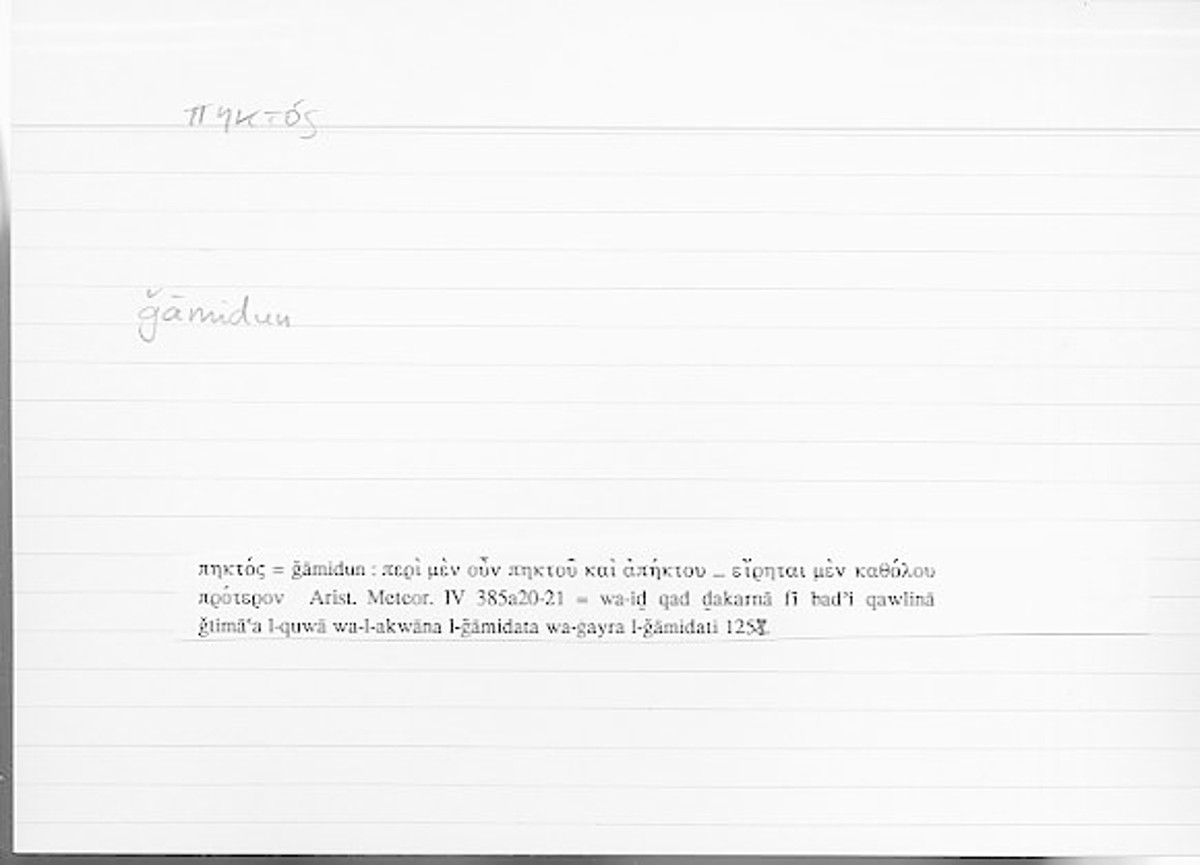 πηκτός
ǧāmidun
πηκτός = ǧāmidun : περὶ μὲν οὖν πηκτοῦ καὶ ἀπήκτου ... εἴρηται μὲν καθόλου
πρότερον Arist. Meteor. IV 385a20-21 = wa-iḏ qad ḏakarnā fī bad’i qawlinā
ǧtimā‘a l-quwā wa-l-akwāna l-ǧāmidata wa-gayra l-ǧāmidati